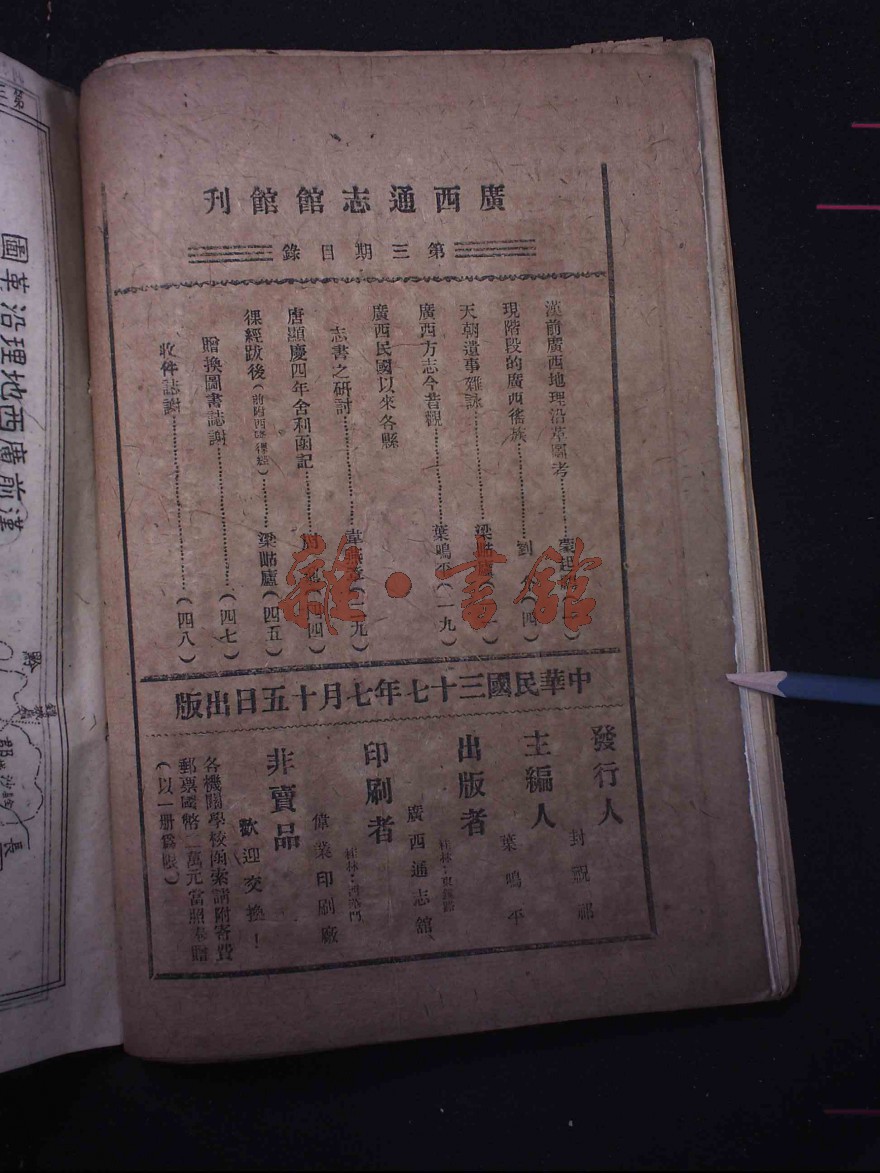 廣西通志館館刊
第三期目錄
漢前廣西地理沿革圖考
現階段的廣西徭族 劉 (四)
天朝遺事雜詠 梁岵廬
廣西方志今昔觀 葉鳴平(一九)
廣西民國以來各縣
志書之研討
唐顯慶四年舍利函記
倮經跋後(前附西 倮經) 梁岵廬(四五)
贈換圖書誌謝(四七)
收件誌謝(四八)
中華民國三十七年七月十五日出版
發行人 封祝祁
主編人 葉鳴平
出版者 桂林: 廣西通志館
印刷者 桂林: 門 偉業印刷廠
非賣品 歡迎交換!
各機關學校函索請附寄費
郵票國幣二萬元當照奉贈
(以一册為限)
雜·書館
漢前廣西地理沿革圖
第三
黔
長